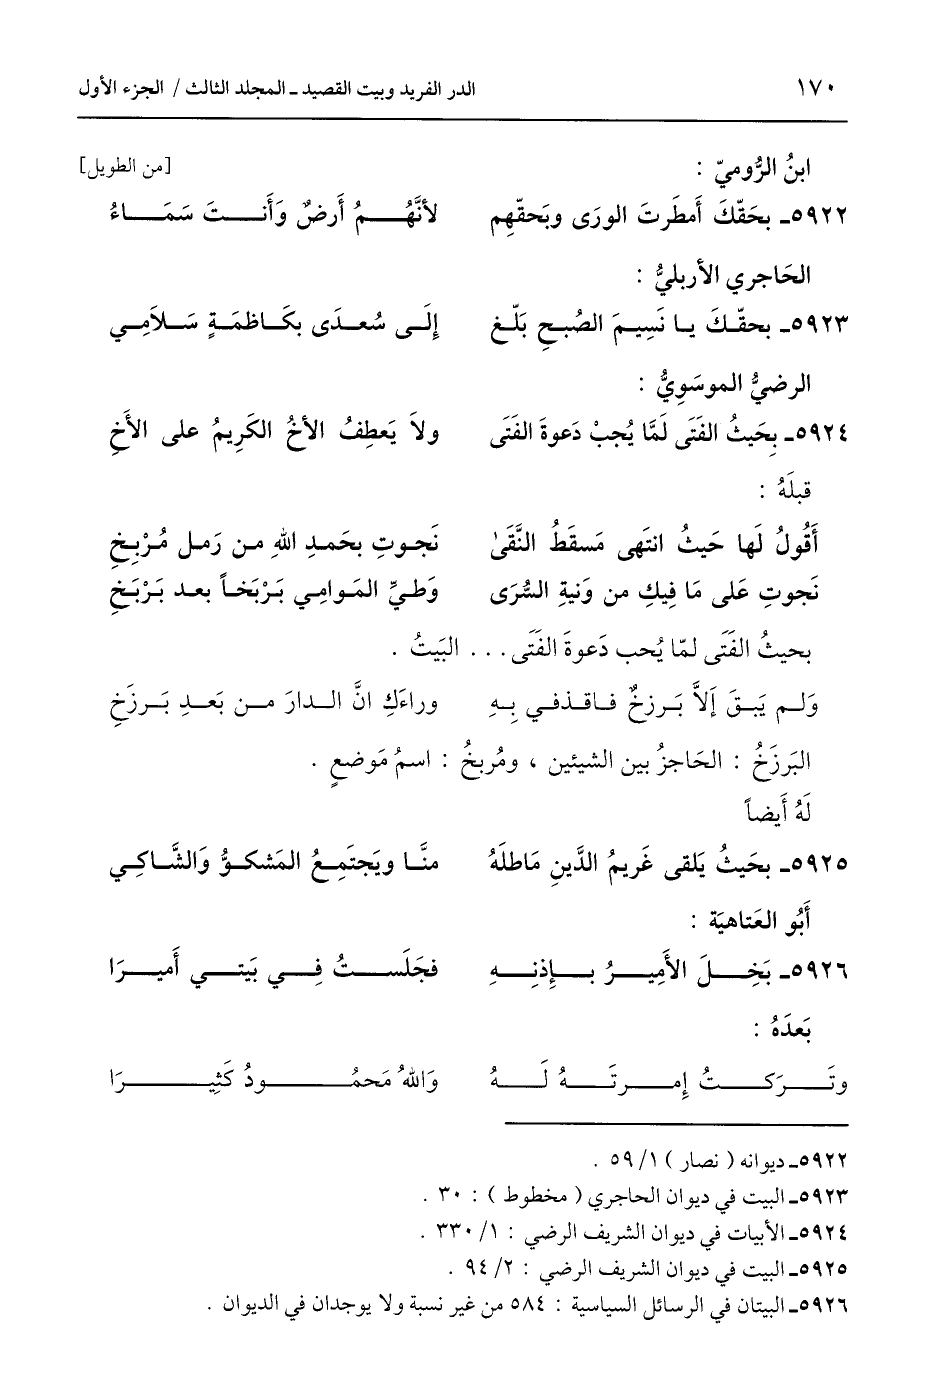 ١٧٠ الدر الفريد وبيت القصيد ـ المجلد الثالث / الجزء الأول
ابنُ الرُّوميّ : [من الطويل]
٥٩٢٢ـ بحَقّكَ أَمطَرتَ الورَى وبَحقّهِم لأنَّهُم أَرضٌ وَأَنتَ سَمَاءُ
الحَاجري الأربليُّ :
٥٩٢٣ـ بحقّكَ يا نَسِيمَ الصُبحِ بَلّغ إلَى سُعدَى بكَاظمَةٍ سَلاَمِي
الرضيُّ الموسَوِيُّ :
٥٩٢٤ـ بِحَيثُ الفَتَى لَمَّا يُجبْ دَعوةَ الفَتَى ولاَ يَعطِفُ الأخُ الكَرِيمُ على الأَخِ
قبلَهُ :
أَقُولُ لَها حَيثُ انتَهى مَسقَطُ النَّقَىٰ نَجوتِ بحَمدِ اللهِ من رَملِ مُرْبخِ
نَجوتِ عَلى مَا فِيكِ من وَنيةِ السُّرَى وَطيِّ المَوامِي بَرْبَخاً بعد بَرْبَخِ
بحيثُ الفَتَى لمّا يُحب دَعوةَ الفَتَى . . . البَيتُ .
وَلم يَبقَ إلاَّ بَرزخٌ فاقذفي بِهِ وراءَكِ انَّ الدارَ من بَعدِ بَرزَخِ
البَرزَخُ : الحَاجزُ بين الشيئين ، ومُربخُ : اسمُ مَوضعٍ .
لَهُ أَيضاً
٥٩٢٥ـ بحَيثُ يَلقى غَريمُ الدَّينِ مَاطلَهُ منَّا ويَجتَمِعُ المَشكوُّ وَالشَّاكِي
أَبُو العَتاهيَة :
٥٩٢٦ـ بَخِلَ الأَمِيرُ بإِذنِهِ فجَلَستُ فِي بَيتي أَميرَا
بَعدَهُ :
وتَركتُ إمرتَهُ لَهُ وَاللهُ مَحمُودُ كَثِيرَا
٥٩٢٢ـ ديوانه ( نصار ) ١/ ٥٩ .
٥٩٢٣ـ البيت في ديوان الحاجري ( مخطوط ) : ٣٠ .
٥٩٢٤ـ الأبيات في ديوان الشريف الرضي : ١/ ٣٣٠ .
٥٩٢٥ـ البيت في ديوان الشريف الرضي : ٢/ ٩٤ .
٥٩٢٦ـ البيتان في الرسائل السياسية : ٥٨٤ من غير نسبة ولا يوجدان في الديوان .